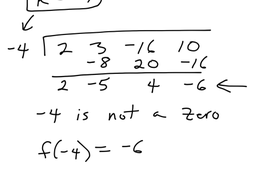 -4 | 2 3 -16 10
-8 20 -16
2 -5 4 -6 ←
-4 is not a zero
f(-4) = -6